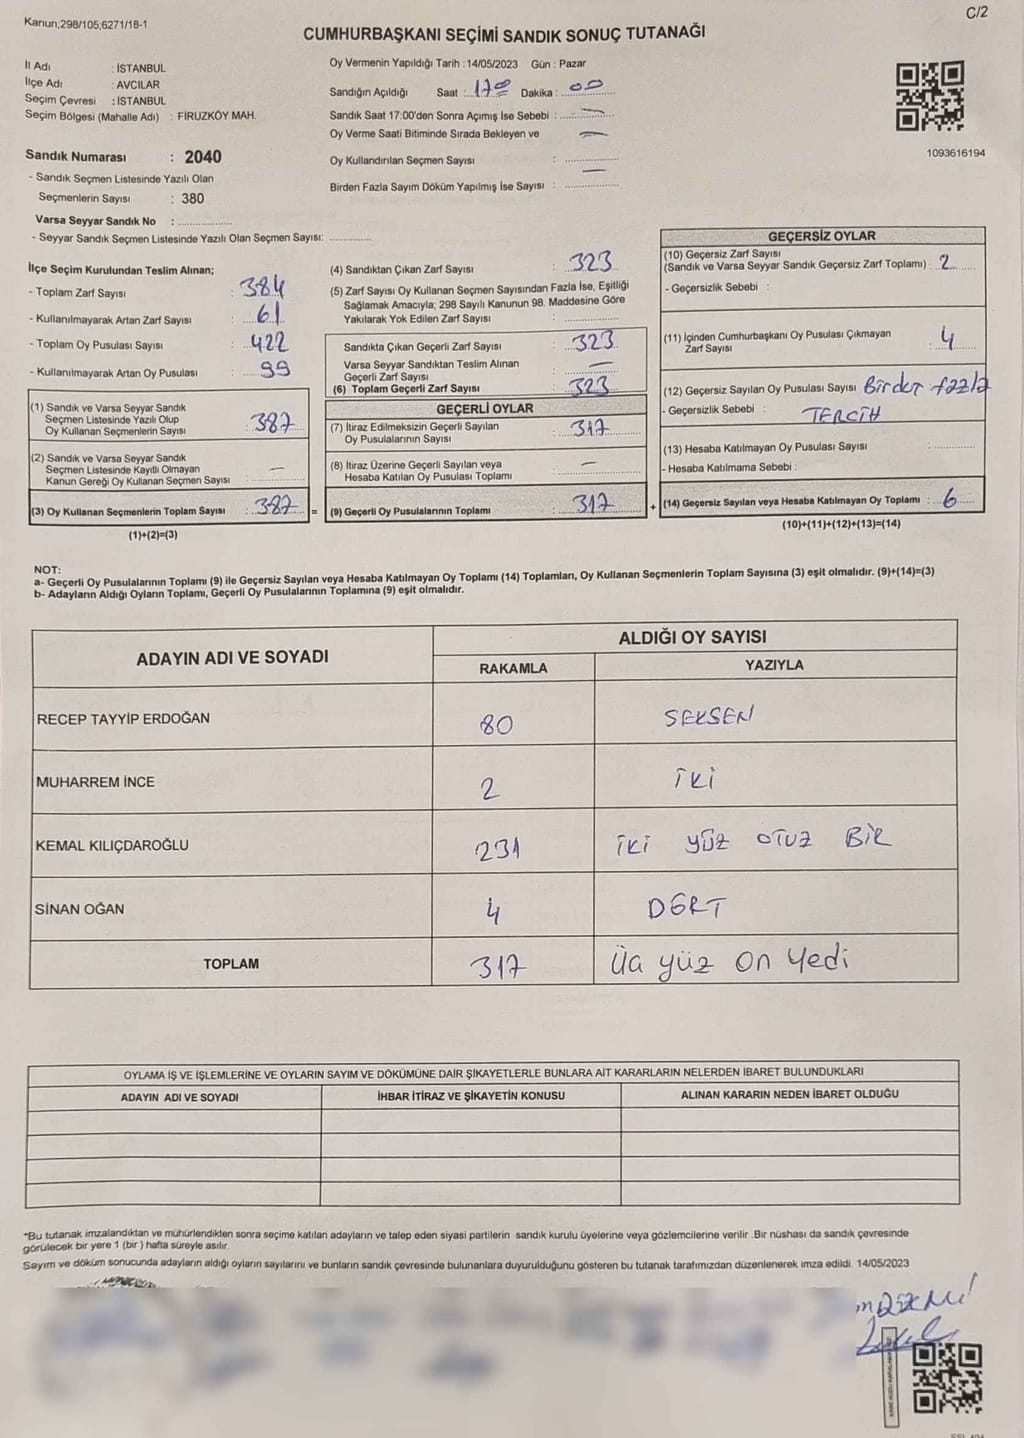 C/2
Kanun;298/105;6271/18-1
CUMHURBAŞKANI SEÇİMİ SANDIK SONUÇ TUTANAĞI
İl Adı : İSTANBUL
İlçe Adı : AVCILAR
Seçim Çevresi : İSTANBUL
Seçim Bölgesi (Mahalle Adı) : FİRUZKÖY MAH.
Sandık Numarası : 2040
- Sandık Seçmen Listesinde Yazılı Olan
Seçmenlerin Sayısı : 380
Varsa Seyyar Sandık No : ..............
- Seyyar Sandık Seçmen Listesinde Yazılı Olan Seçmen Sayısı: ............
Oy Vermenin Yapıldığı Tarih : 14/05/2023 Gün : Pazar
Sandığın Açıldığı Saat : 17 00 Dakika : 00
Sandık Saat 17:00'den Sonra Açımış İse Sebebi : —
Oy Verme Saati Bitiminde Sırada Bekleyen ve —
Oy Kullandırılan Seçmen Sayısı : ..............
Birden Fazla Sayım Döküm Yapılmış İse Sayısı : —
1093616194
İlçe Seçim Kurulundan Teslim Alınan;
- Toplam Zarf Sayısı : 384
- Kullanılmayarak Artan Zarf Sayısı : 61
- Toplam Oy Pusulası Sayısı : 422
- Kullanılmayarak Artan Oy Pusulası : 99
(1) Sandık ve Varsa Seyyar Sandık
Seçmen Listesinde Yazılı Olup
Oy Kullanan Seçmenlerin Sayısı : 387
(2) Sandık ve Varsa Seyyar Sandık
Seçmen Listesinde Kayıtlı Olmayan
Kanun Gereği Oy Kullanan Seçmen Sayısı : —
(3) Oy Kullanan Seçmenlerin Toplam Sayısı : 387 =
(1)+(2)=(3)
(4) Sandıktan Çıkan Zarf Sayısı : 323
(5) Zarf Sayısı Oy Kullanan Seçmen Sayısından Fazla İse, Eşitliği
Sağlamak Amacıyla; 298 Sayılı Kanunun 98. Maddesine Göre
Yakılarak Yok Edilen Zarf Sayısı : ..............
Sandıkta Çıkan Geçerli Zarf Sayısı : 323
Varsa Seyyar Sandıktan Teslim Alınan
Geçerli Zarf Sayısı : —
(6) Toplam Geçerli Zarf Sayısı : 323
GEÇERLİ OYLAR
(7) İtiraz Edilmeksizin Geçerli Sayılan
Oy Pusulalarının Sayısı : 317
(8) İtiraz Üzerine Geçerli Sayılan veya
Hesaba Katılan Oy Pusulası Toplamı : —
(9) Geçerli Oy Pusulalarının Toplamı : 317 +
GEÇERSİZ OYLAR
(10) Geçersiz Zarf Sayısı
(Sandık ve Varsa Seyyar Sandık Geçersiz Zarf Toplamı) : 2
- Geçersizlik Sebebi :
(11) İçinden Cumhurbaşkanı Oy Pusulası Çıkmayan
Zarf Sayısı 4
(12) Geçersiz Sayılan Oy Pusulası Sayısı Birden fazla
- Geçersizlik Sebebi : TERCİH
(13) Hesaba Katılmayan Oy Pusulası Sayısı : ............
- Hesaba Katılmama Sebebi :
(14) Geçersiz Sayılan veya Hesaba Katılmayan Oy Toplamı : 6
(10)+(11)+(12)+(13)=(14)
NOT:
a- Geçerli Oy Pusulalarının Toplamı (9) ile Geçersiz Sayılan veya Hesaba Katılmayan Oy Toplamı (14) Toplamları, Oy Kullanan Seçmenlerin Toplam Sayısına (3) eşit olmalıdır. (9)+(14)=(3)
b- Adayların Aldığı Oyların Toplamı, Geçerli Oy Pusulalarının Toplamına (9) eşit olmalıdır.
ADAYIN ADI VE SOYADI
ALDIĞI OY SAYISI
RAKAMLA YAZIYLA
RECEP TAYYİP ERDOĞAN 80 SEKSEN
MUHARREM İNCE 2 İKİ
KEMAL KILIÇDAROĞLU 231 İKİ YÜZ OTUZ BİR
SİNAN OĞAN 4 DÖRT
TOPLAM 317 Üç yüz on Yedi
OYLAMA İŞ VE İŞLEMLERİNE VE OYLARIN SAYIM VE DÖKÜMÜNE DAİR ŞİKAYETLERLE BUNLARA AİT KARARLARIN NELERDEN İBARET BULUNDUKLARI
ADAYIN ADI VE SOYADI İHBAR İTİRAZ VE ŞİKAYETİN KONUSU ALINAN KARARIN NEDEN İBARET OLDUĞU
*Bu tutanak imzalandıktan ve mühürlendikten sonra seçime katılan adayların ve talep eden siyasi partilerin sandık kurulu üyelerine veya gözlemcilerine verilir .Bir nüshası da sandık çevresinde
görülecek bir yere 1 (bir ) hafta süreyle asılır.
Sayım ve döküm sonucunda adayların aldığı oyların sayılarını ve bunların sandık çevresinde bulunanlara duyurulduğunu gösteren bu tutanak tarafımızdan düzenlenerek imza edildi. 14/05/2023